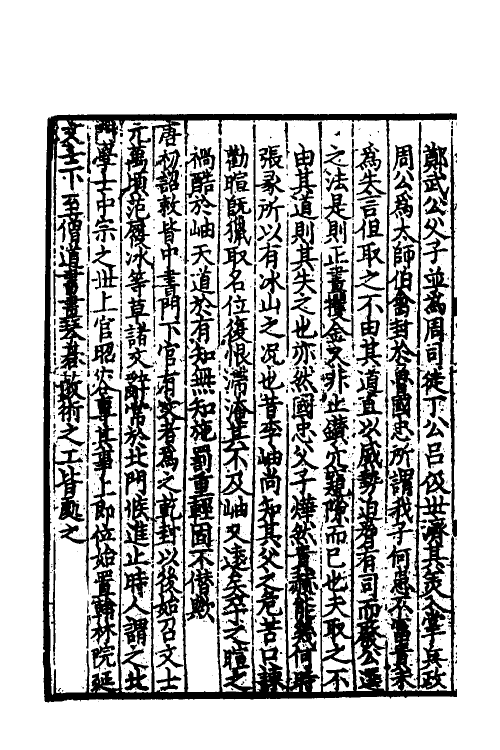 鄭武公父子並爲周司徒丁公吕伋世濟其美入掌兵政
周公爲太師伯禽封於魯國忠所謂我子何患不富貴未
爲失言但取之不由其道直以威勢迫脅有司而廢公選
之法是則正晝攫金又非止鑽穴窺隙而已也夫取之不
由其道則其失之也亦然國忠父子燁然貴赫能幾何時
張彖所以有冰山之况也昔李岫尚知其父之危苦口諫
勸暄旣獵取名位復恨滯淹其不及岫又遠矣卒之暄之
禍酷於岫天道於有知無知施罰重輕固不僣歟
唐初詔敕皆中書門下官有文者爲之乾封以後始召文士
元萬頃范履冰等草諸文辭常於北門候進止時人謂之北
門學士中宗之世上官昭容專其事上即位始置翰林院延
文士下至僧道書畫琴棊數術之工皆處之